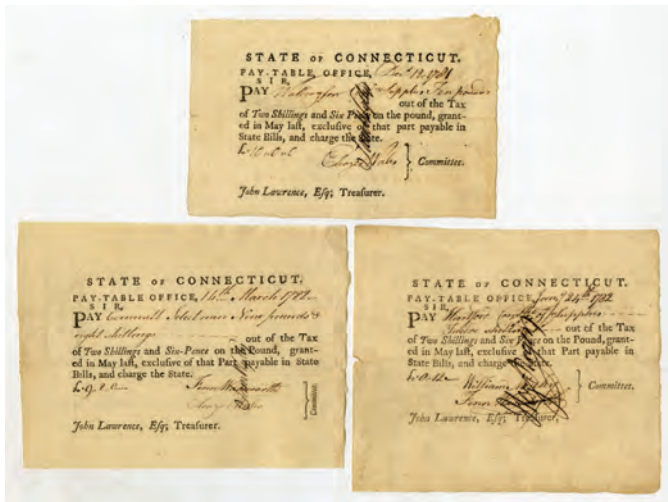 STATE OF CONNECTICUT.
PAY-TABLE OFFICE, 1781
SIR,
PAY Supplies Ten pounds
out of the Tax
of Two Shillings and Six Pence on the pound, grant-
ed in May laſt, excluſive of that part payable in
State Bills, and charge the State.
Committee.
John Lawrence, Eſq; Treaſurer.
STATE OF CONNECTICUT.
PAY-TABLE OFFICE, 14th March 1782
SIR,
PAY Cornwall Select men Nine pounds &
eight shillings out of the Tax
of Two Shillings and Six-Pence on the Pound, grant-
ed in May laſt, excluſive of that Part payable in State
Bills, and charge the State.
Committee.
John Lawrence, Eſq; Treaſurer.
STATE OF CONNECTICUT.
PAY-TABLE OFFICE, 24th 1782
SIR,
PAY Hartford Supplies
out of the Tax
of Two Shillings and Six Pence on the Pound, grant-
ed in May laſt, excluſive of that Part payable in
State Bills, and charge the State.
William
Committee.
John Lawrence, Eſq; Treaſurer,